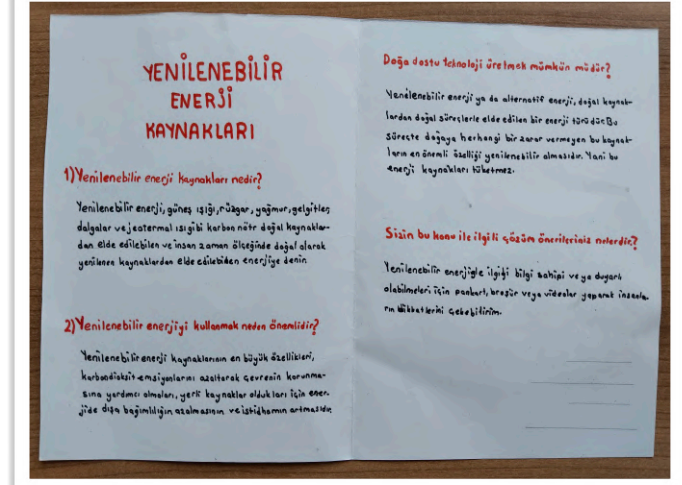 YENİLENEBİLİR
ENERJİ
KAYNAKLARI
1) Yenilenebilir enerji kaynakları nedir?
Yenilenebilir enerji, güneş ışığı, rüzgar, yağmur, gelgitler,
dalgalar ve jeotermal ısı gibi karbon nötr doğal kaynaklar-
dan elde edilebilen ve insan zaman ölçeğinde doğal olarak
yenilenen kaynaklardan elde edilebiden enerjiye denin
2) Yenilenebilir enerjiyi kullanmak neden önemlidir?
Yenilenebilir enerji kaynaklarının en büyük özellikleri,
karbondioksit emsiyonlarını azaltarak çevrenin korunma-
sına yardımcı olmaları, yerli kaynaklar oldukları için ener-
jide dışa bağımlılığın azalmasının ve istidhamın artmasıdır.
Doğa dostu teknoloji üretmek mümkün müdür?
Yenilenebilir enerji ya da alternatif enerji, doğal kaynak-
lardan doğal süreçlerle elde edilen bir enerji türüdür. Bu
süreçte doğaya herhangi bir zarar vermeyen bu kaynak-
ların en önemli özelliği yenilenebilir olmasıdır. Yani bu
enerji kaynakları tüketmez.
Sizin bu konu ile ilgili çözüm önerileriniz nelerdir?
Yenilenebilir enerjigle ilgiği bilgi sahipi veya duyarlı
olabilmeleri için pankart, broşür veya videolar yaparak insanla-
rın dikkatlerini çekebilirim.